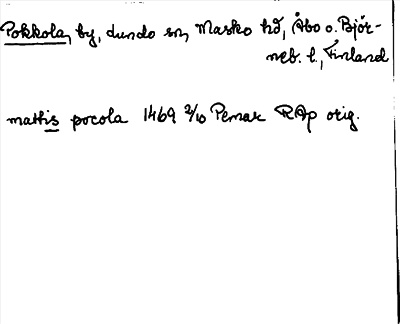 Pokkola, by, Lundo sn, Masko hd, Åbo o. Björ-
neb. l., Finland
mathis pocola 1469 2/10 Pemar RAp orig.